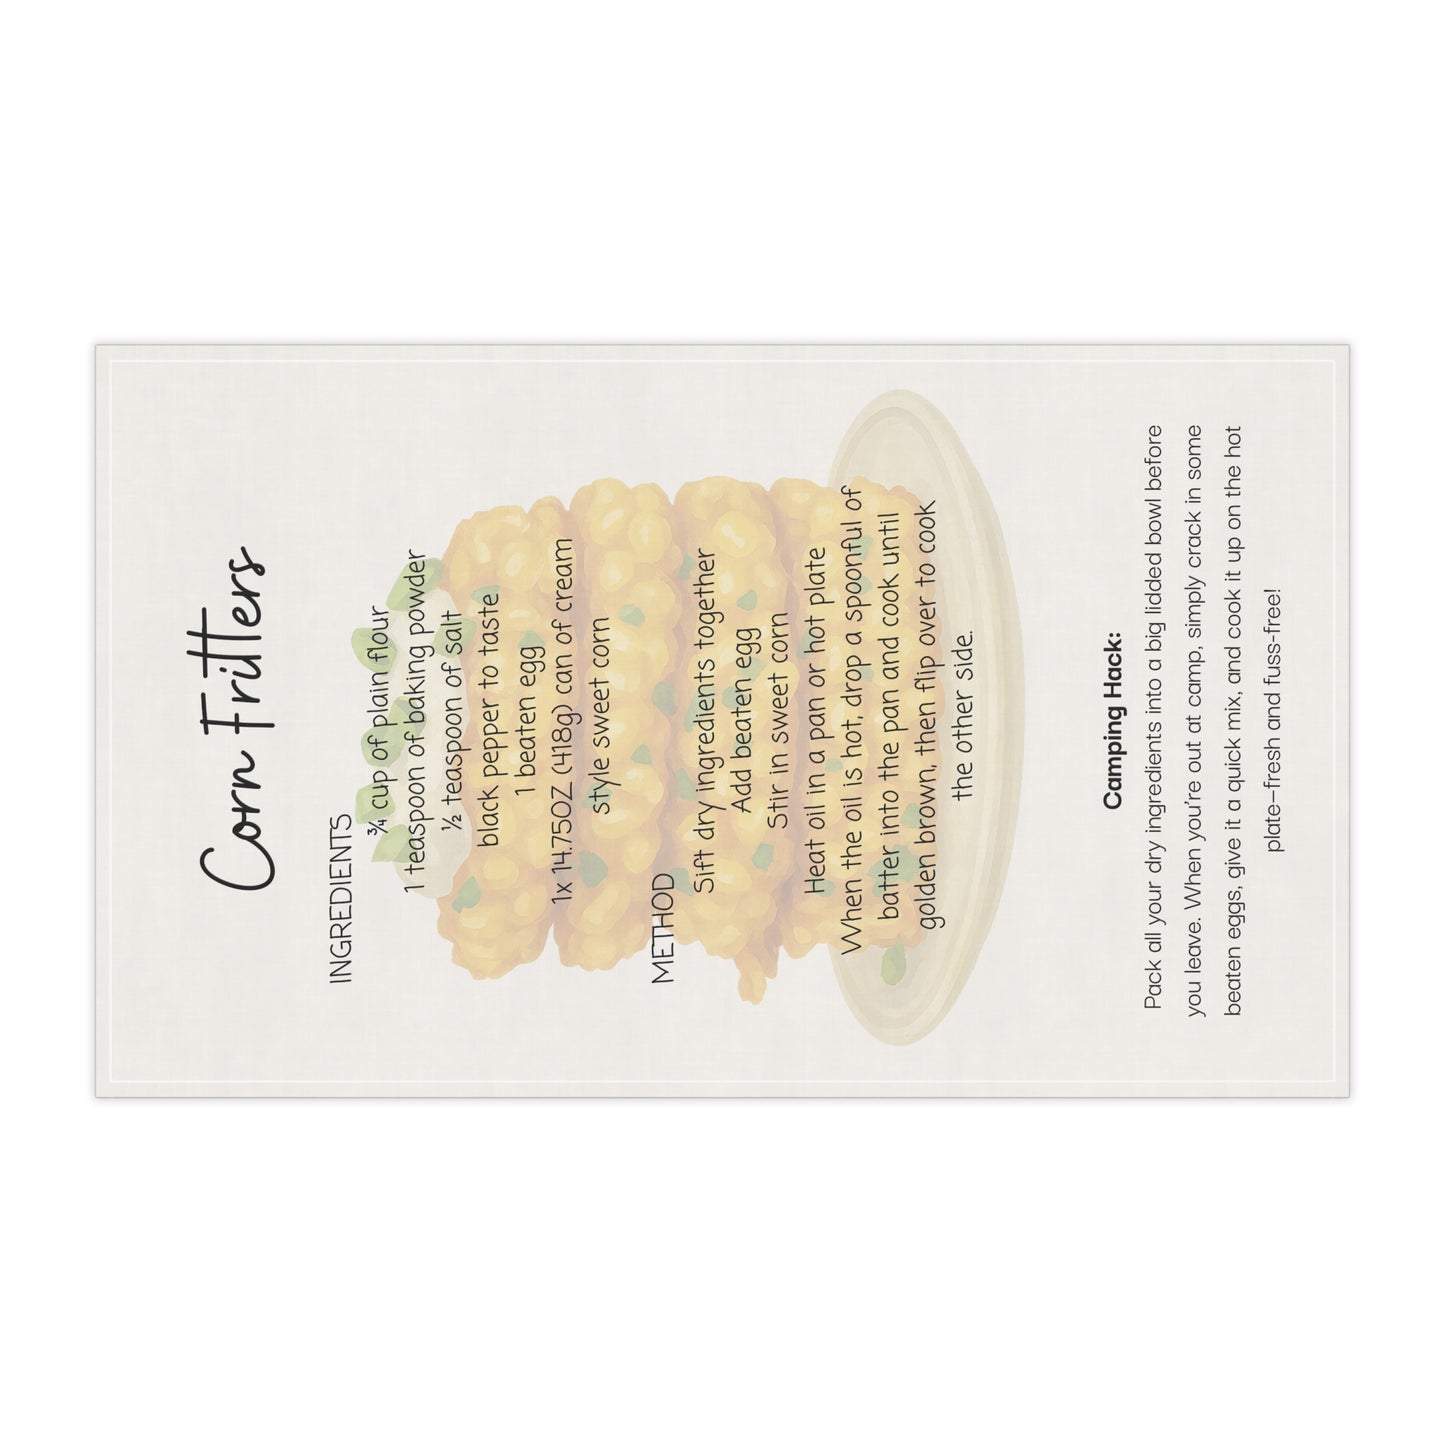 Corn Fritters
INGREDIENTS
¾ cup of plain flour
1 teaspoon of baking powder
½ teaspoon of salt
black pepper to taste
1 beaten egg
1x 14.75OZ (418g) can of cream
style sweet corn
METHOD
Sift dry ingredients together
Add beaten egg
Stir in sweet corn
Heat oil in a pan or hot plate
When the oil is hot, drop a spoonful of
batter into the pan and cook until
golden brown, then flip over to cook
the other side.
Camping Hack:
Pack all your dry ingredients into a big lidded bowl before
you leave. When you’re out at camp, simply crack in some
beaten eggs, give it a quick mix, and cook it up on the hot
plate—fresh and fuss-free!